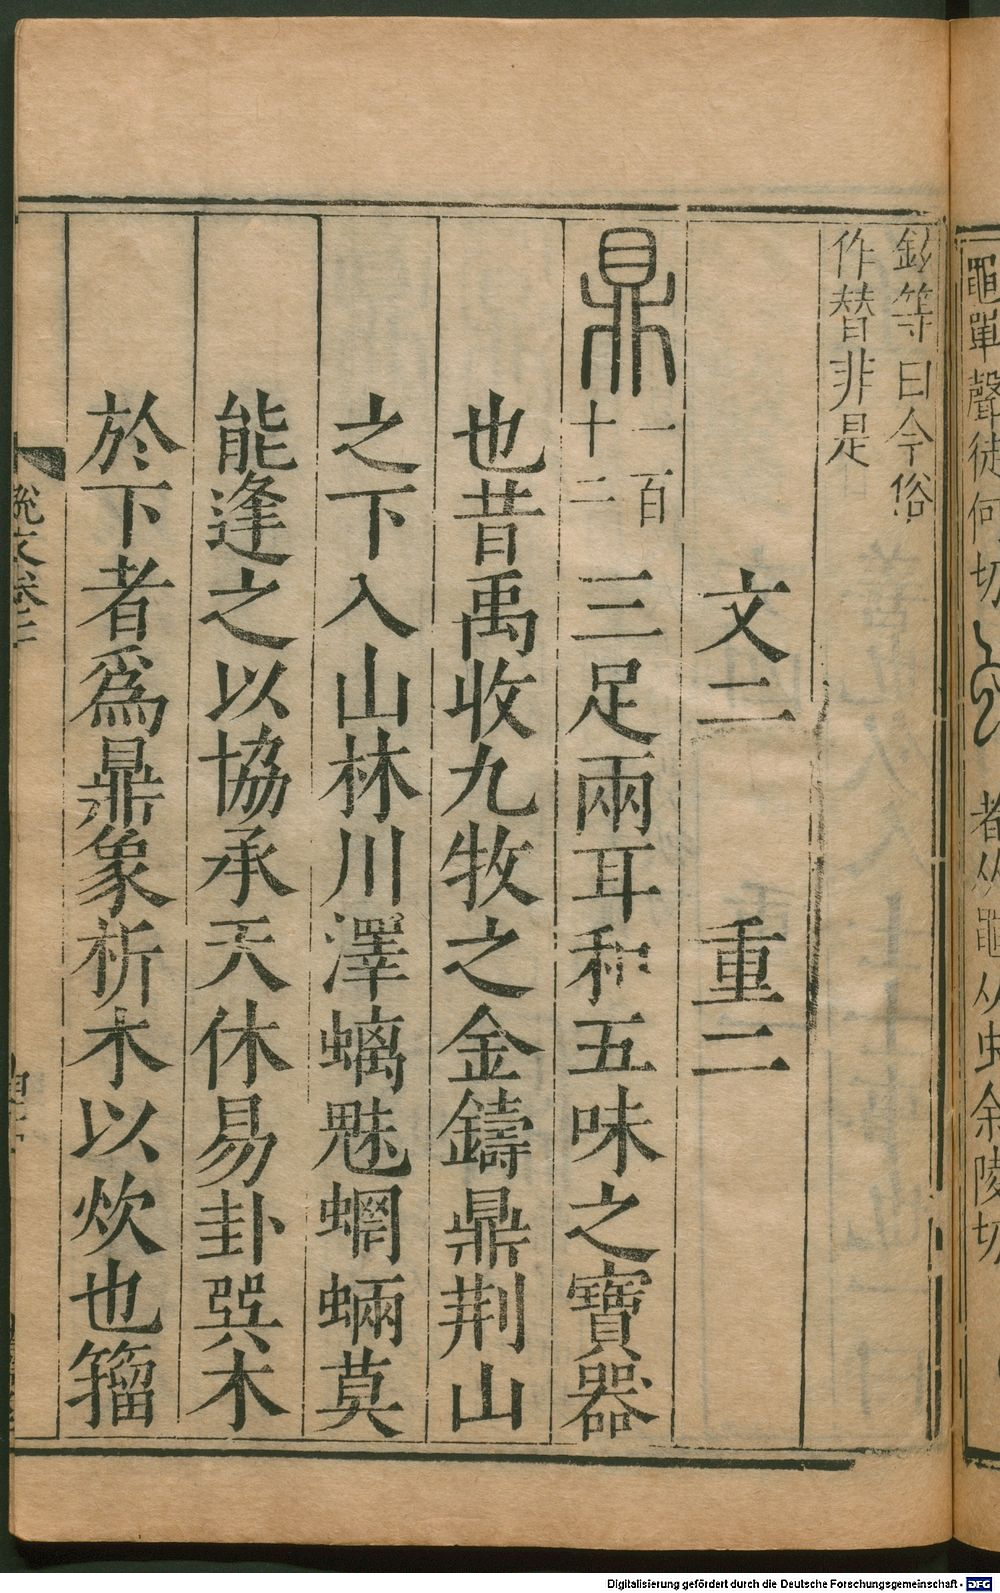 黽單聲徒何切
从黽从虫余陵切
鉉等曰今俗
作替非是
文二 重二
鼎 一百十二 三足兩耳和五味之寶器
也昔禹收九牧之金鑄鼎荆山
之下入山林川澤螭魅蝄蜽莫
能逢之以協承天休易卦巽木
於下者爲鼎象析木以炊也籀
Digitalisierung gefördert durch die Deutsche Forschungsgemeinschaft - DFG